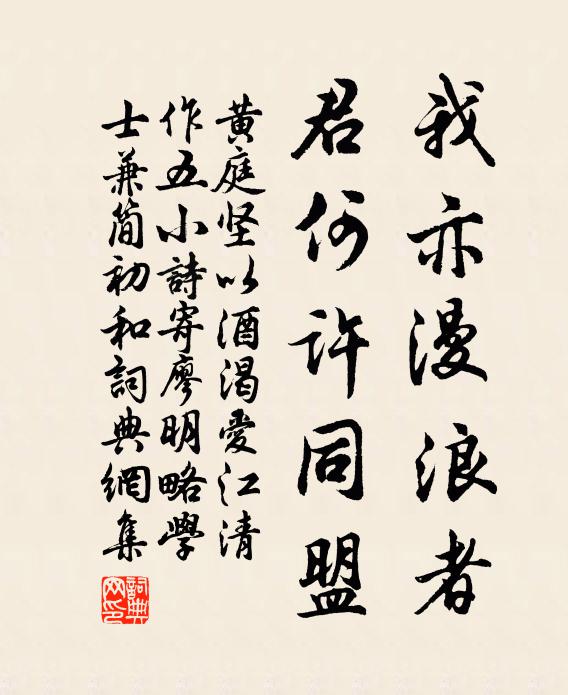 我亦漫浪者
君何许同盟
黄庭坚以酒渴爱江清
作五小詩寄廖明略學
士兼简初和詞典網集
詞典網印